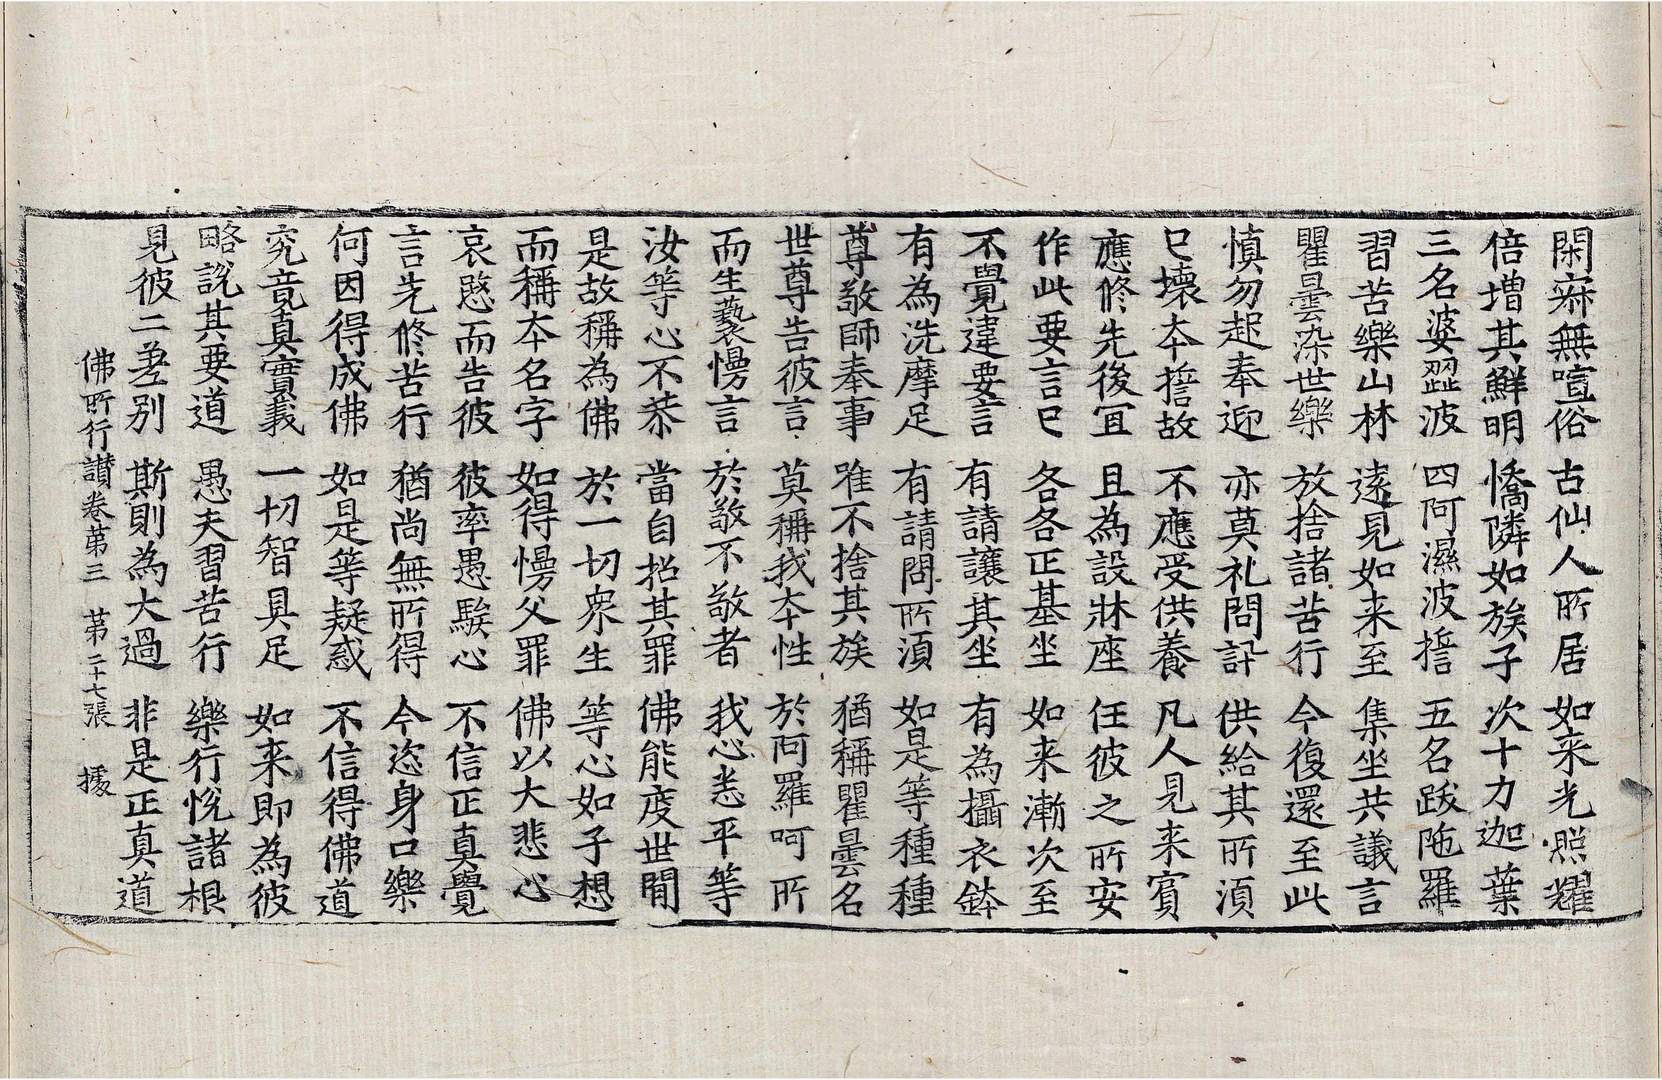 閑寂無喧俗 古仙人所居 如来光照耀
倍增其鮮明 憍隣如族子 次十力迦葉
三名婆澀波 四阿濕波誓 五名跋陁羅
習苦樂山林 遠見如来至 集坐共議言
瞿曇染世樂 放捨諸苦行 今復還至此
慎勿起奉迎 亦莫礼問訊 供給其所須
已壞本誓故 不應受供養 凡人見来賓
應俢先後宜 且為設牀座 任彼之所安
作此要言已 各各正基坐 如来漸次至
不覺違要言 有請讓其坐 有為攝衣鉢
有為洗摩足 有請問所須 如是等種種
尊敬師奉事 唯不捨其族 猶稱瞿曇名
世尊告彼言 莫稱我本性 於阿羅呵所
而生褻慢言 於敬不敬者 我心悉平等
汝等心不恭 當自招其罪 佛能度世間
是故稱為佛 於一切衆生 等心如子想
而稱本名字 如得慢父罪 佛以大悲心
哀愍而告彼 彼率愚騃心 不信正真覺
言先修苦行 猶尚無所得 今恣身口樂
何因得成佛 如是等疑惑 不信得佛道
究竟真實義 一切智具足 如来即為彼
略說其要道 愚夫習苦行 樂行悅諸根
見彼二差別 斯則為大過 非是正真道
佛所行讃卷第三 第二十七張 據